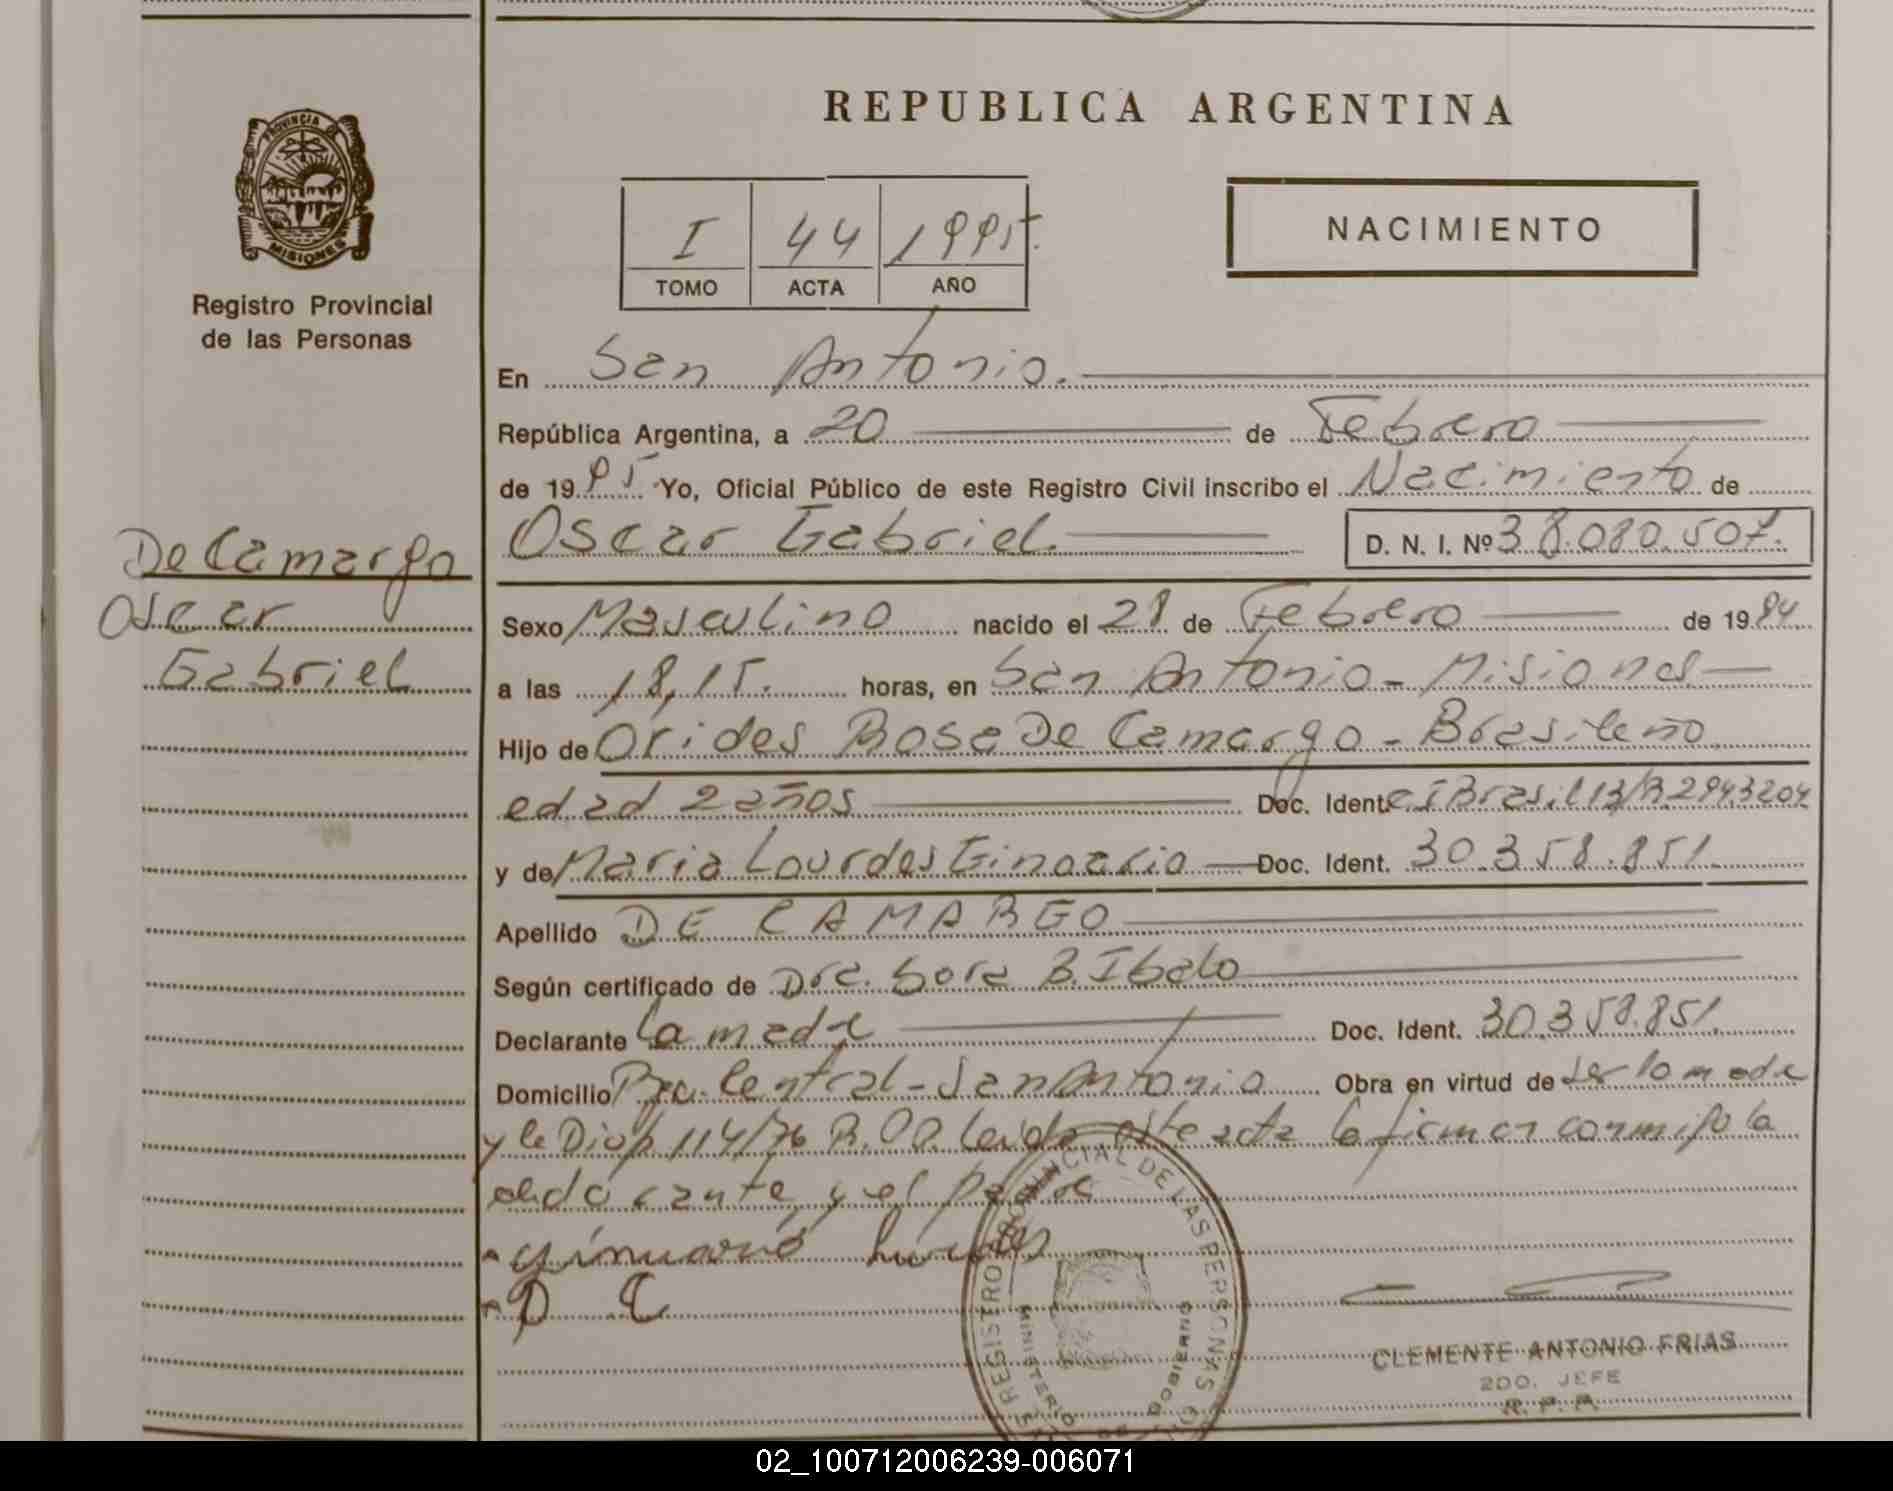 REPUBLICA ARGENTINA
PROVINCIA DE
MISIONES
Registro Provincial
de las Personas
NACIMIENTO
I 44 1995.
TOMO ACTA AÑO
En San Antonio.
República Argentina, a 20 de Febrero
de 1995 Yo, Oficial Público de este Registro Civil inscribo el Nacimiento de
Oscar Gabriel. D. N. I. Nº 38.080.507.
De Camargo
Oscar
Gabriel
Sexo Masculino nacido el 28 de Febrero de 1994
a las 18,15. horas, en San Antonio - Misiones
Hijo de Orides Rosa De Camargo - Brasileño
edad 2 años Doc. Ident.
y de Maria Lourdes Ginoario Doc. Ident. 30.358.851.
Apellido DE CAMARGO
Según certificado de Dra. Sora B. Ibalo
Declarante La madre Doc. Ident. 30.358.851.
Domicilio Bo. Central - San Antonio Obra en virtud de ser la madre
y la Disp. 114/76 leida este acta la firman conmigo la
declarante y el padre
D C
REGISTRO PROVINCIAL DE LAS PERSONAS
MINISTERIO DE GOBIERNO
CLEMENTE ANTONIO FRIAS
2DO. JEFE
R. P. P.
02_100712006239-006071